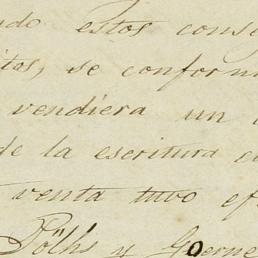 ndo estos conse
itos, se conform
vendiera un
de la escritura e
venta tuvo ef
Pölhs y Goerne